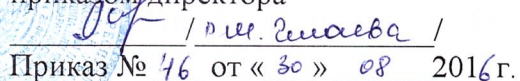 приказом директора
/ Р.Ш. Гилаева /
Приказ № 46 от « 30 » 08 2016 г.